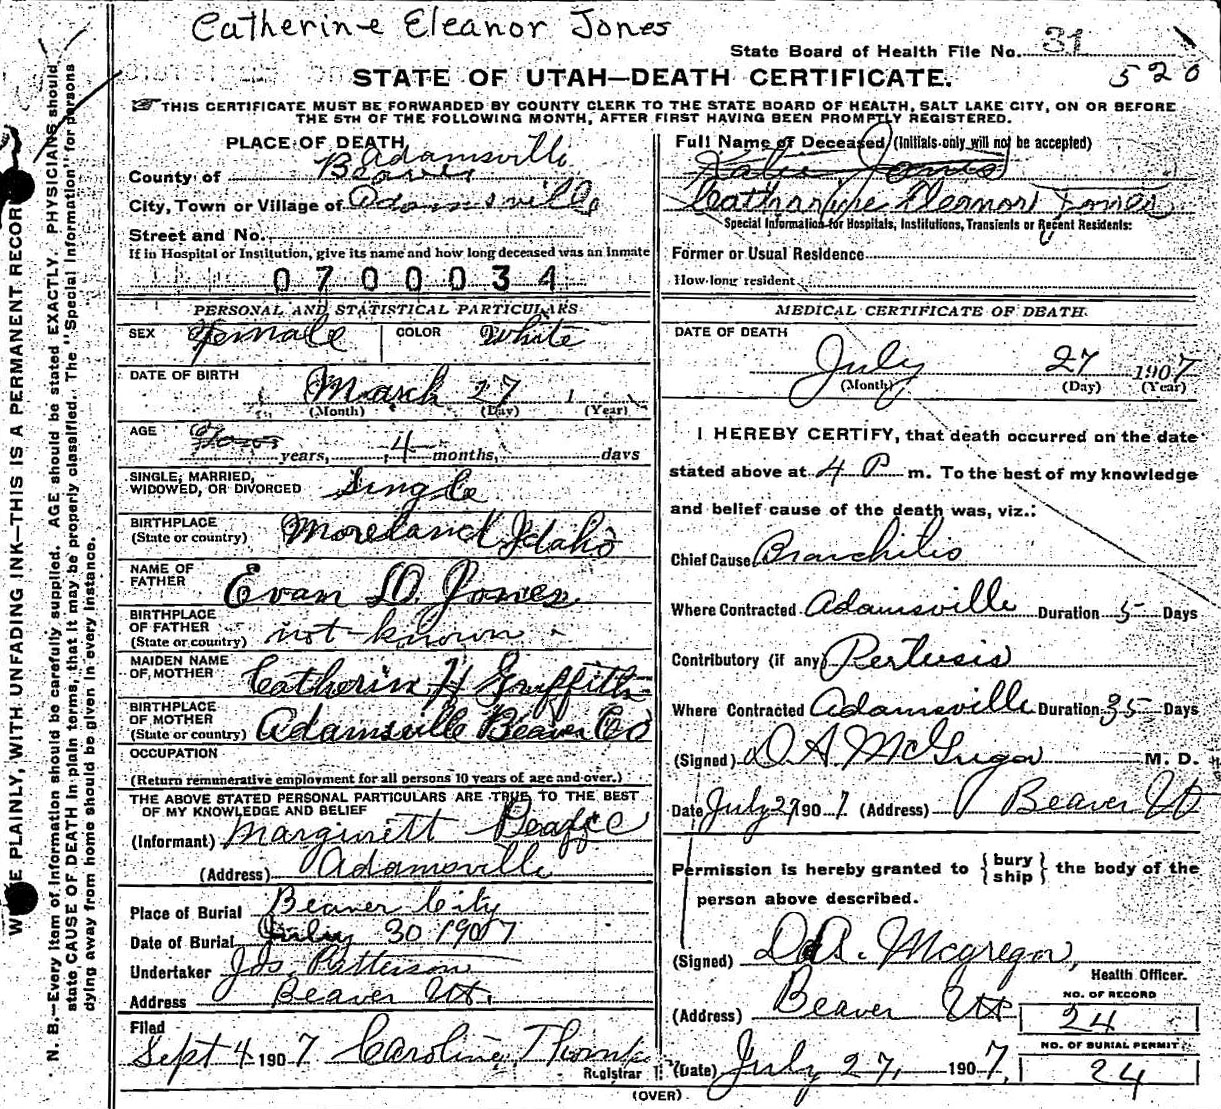 Catherine Eleanor Jones
State Board of Health File No. 31
520
STATE OF UTAH—DEATH CERTIFICATE.
THIS CERTIFICATE MUST BE FORWARDED BY COUNTY CLERK TO THE STATE BOARD OF HEALTH, SALT LAKE CITY, ON OR BEFORE
THE 5TH OF THE FOLLOWING MONTH, AFTER FIRST HAVING BEEN PROMPTLY REGISTERED.
PLACE OF DEATH
Adamsville
County of Beaver
City, Town or Village of Adamsville
Street and No.
If in Hospital or Institution, give its name and how long deceased was an Inmate
0700034
PERSONAL AND STATISTICAL PARTICULARS
SEX Female COLOR White
DATE OF BIRTH
March 27 1
(Month) (Day) (Year)
AGE
Four years, 4 months, days
SINGLE, MARRIED,
WIDOWED, OR DIVORCED Single
BIRTHPLACE
(State or country) Moreland Idaho
NAME OF
FATHER Evan D. Jones
BIRTHPLACE
OF FATHER
(State or country) not known
MAIDEN NAME
OF MOTHER Catherin H Griffith
BIRTHPLACE
OF MOTHER
(State or country) Adamsville Beaver Co
OCCUPATION
(Return remunerative employment for all persons 10 years of age and over.)
THE ABOVE STATED PERSONAL PARTICULARS ARE TRUE TO THE BEST
OF MY KNOWLEDGE AND BELIEF
(Informant) Margurett
(Address) Adamsville
Place of Burial Beaver City
Date of Burial July 30 1907
Undertaker Jos. Patterson
Address Beaver Ut.
Filed
Sept 4 1907 Caroline
Registrar
Full Name of Deceased (Initials only will not be accepted)
Katie Jones
Catharine Elernor Jones
Special Information for Hospitals, Institutions, Transients or Recent Residents:
Former or Usual Residence
How long resident
MEDICAL CERTIFICATE OF DEATH
DATE OF DEATH
July 27 1907
(Month) (Day) (Year)
I HEREBY CERTIFY, that death occurred on the date
stated above at 4 P m. To the best of my knowledge
and belief cause of the death was, viz.:
Chief Cause Bronchitis
Where Contracted Adamsville Duration 5 Days
Contributory (if any) Pertusis
Where Contracted Adamsville Duration 35 Days
(Signed) D A McGregor M. D.
Date July 27 1907 (Address) Beaver Ut
Permission is hereby granted to {bury ship} the body of the
person above described.
(Signed) D A. Mcgregor,
Health Officer.
(Address) Beaver Ut
NO. OF RECORD
24
NO. OF BURIAL PERMIT
24
(Date) July 27, 1907,
(OVER)
PLAINLY, WITH UNFADING INK—THIS IS A PERMANENT RECOR
N. B.—Every item of information should be carefully supplied. AGE should be stated EXACTLY. PHYSICIANS should
state CAUSE OF DEATH in plain terms, that it may be properly classified. The "Special Information" for persons
dying away from home should be given in every instance.